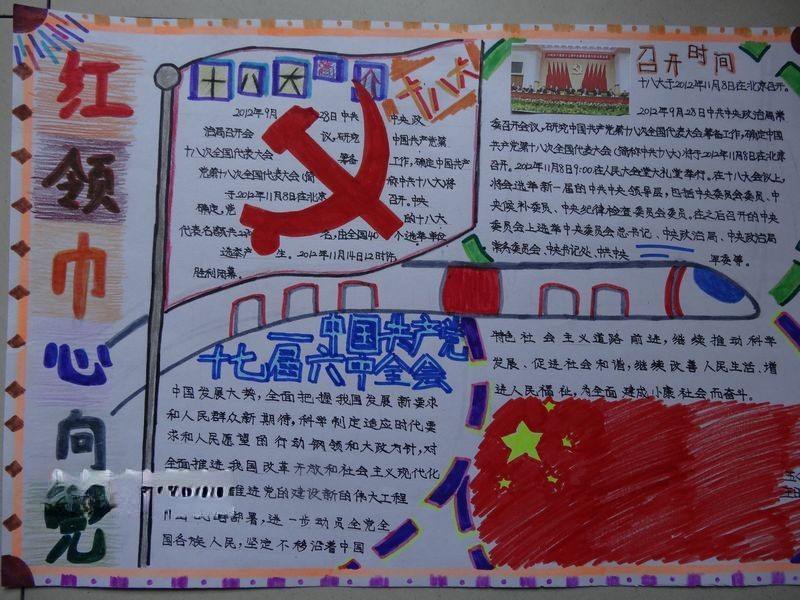 红领巾心向党
十八大简介
十八大
2012年9月28日中共 中央政
治局召开会 议,研究 中国共产党第
十八次全国代表大会 筹备 工作,确定中国共产
党第十八次全国代表大会(简 称中共十八大)将
于2012年11月8日在北京 召开。中央
确定,党 的十八大
代表名额共 名,由全国40个选举单位
选举产 生。2012年11月14日12时许
胜利闭幕。
召开时间
十八大于2012年11月8日在北京召开。
2012年9月28日中共中央政治局常
委召开会议,研究中国共产党第十八次全国代表大会筹备工作,确定中国
共产党第十八次全国代表大会(简称中共十八大)将于2012年11月8日在北京
召开。2012年11月8日9:00在人民大会堂大礼堂举行。在十八大会议上,
将会选举新一届的中共中央领导层,包括中央委员会委员、中
央候补委员、中央纪律检查委员会委员。在之后召开的中央
委员会上选举中央委员会总书记、中央政治局、中央政治局
常务委员会、中央书记处、中共中央 军委等。
中国共产党
十七届六中全会
中国发展大势,全面把握我国发展新要求
和人民群众新期待,科学制定适应时代要
求和人民愿望的行动钢领和大政方针,对
全面推进我国改革开放和社会主义现代化
推进党的建设新的伟大工程
部署,进一步动员全党全
国各族人民,坚定不移沿着中国
特色社会主义道路前进,继续推动科学
发展、促进社会和谐,继续改善人民生活、增
进人民福祉,为全面建成小康社会而奋斗。